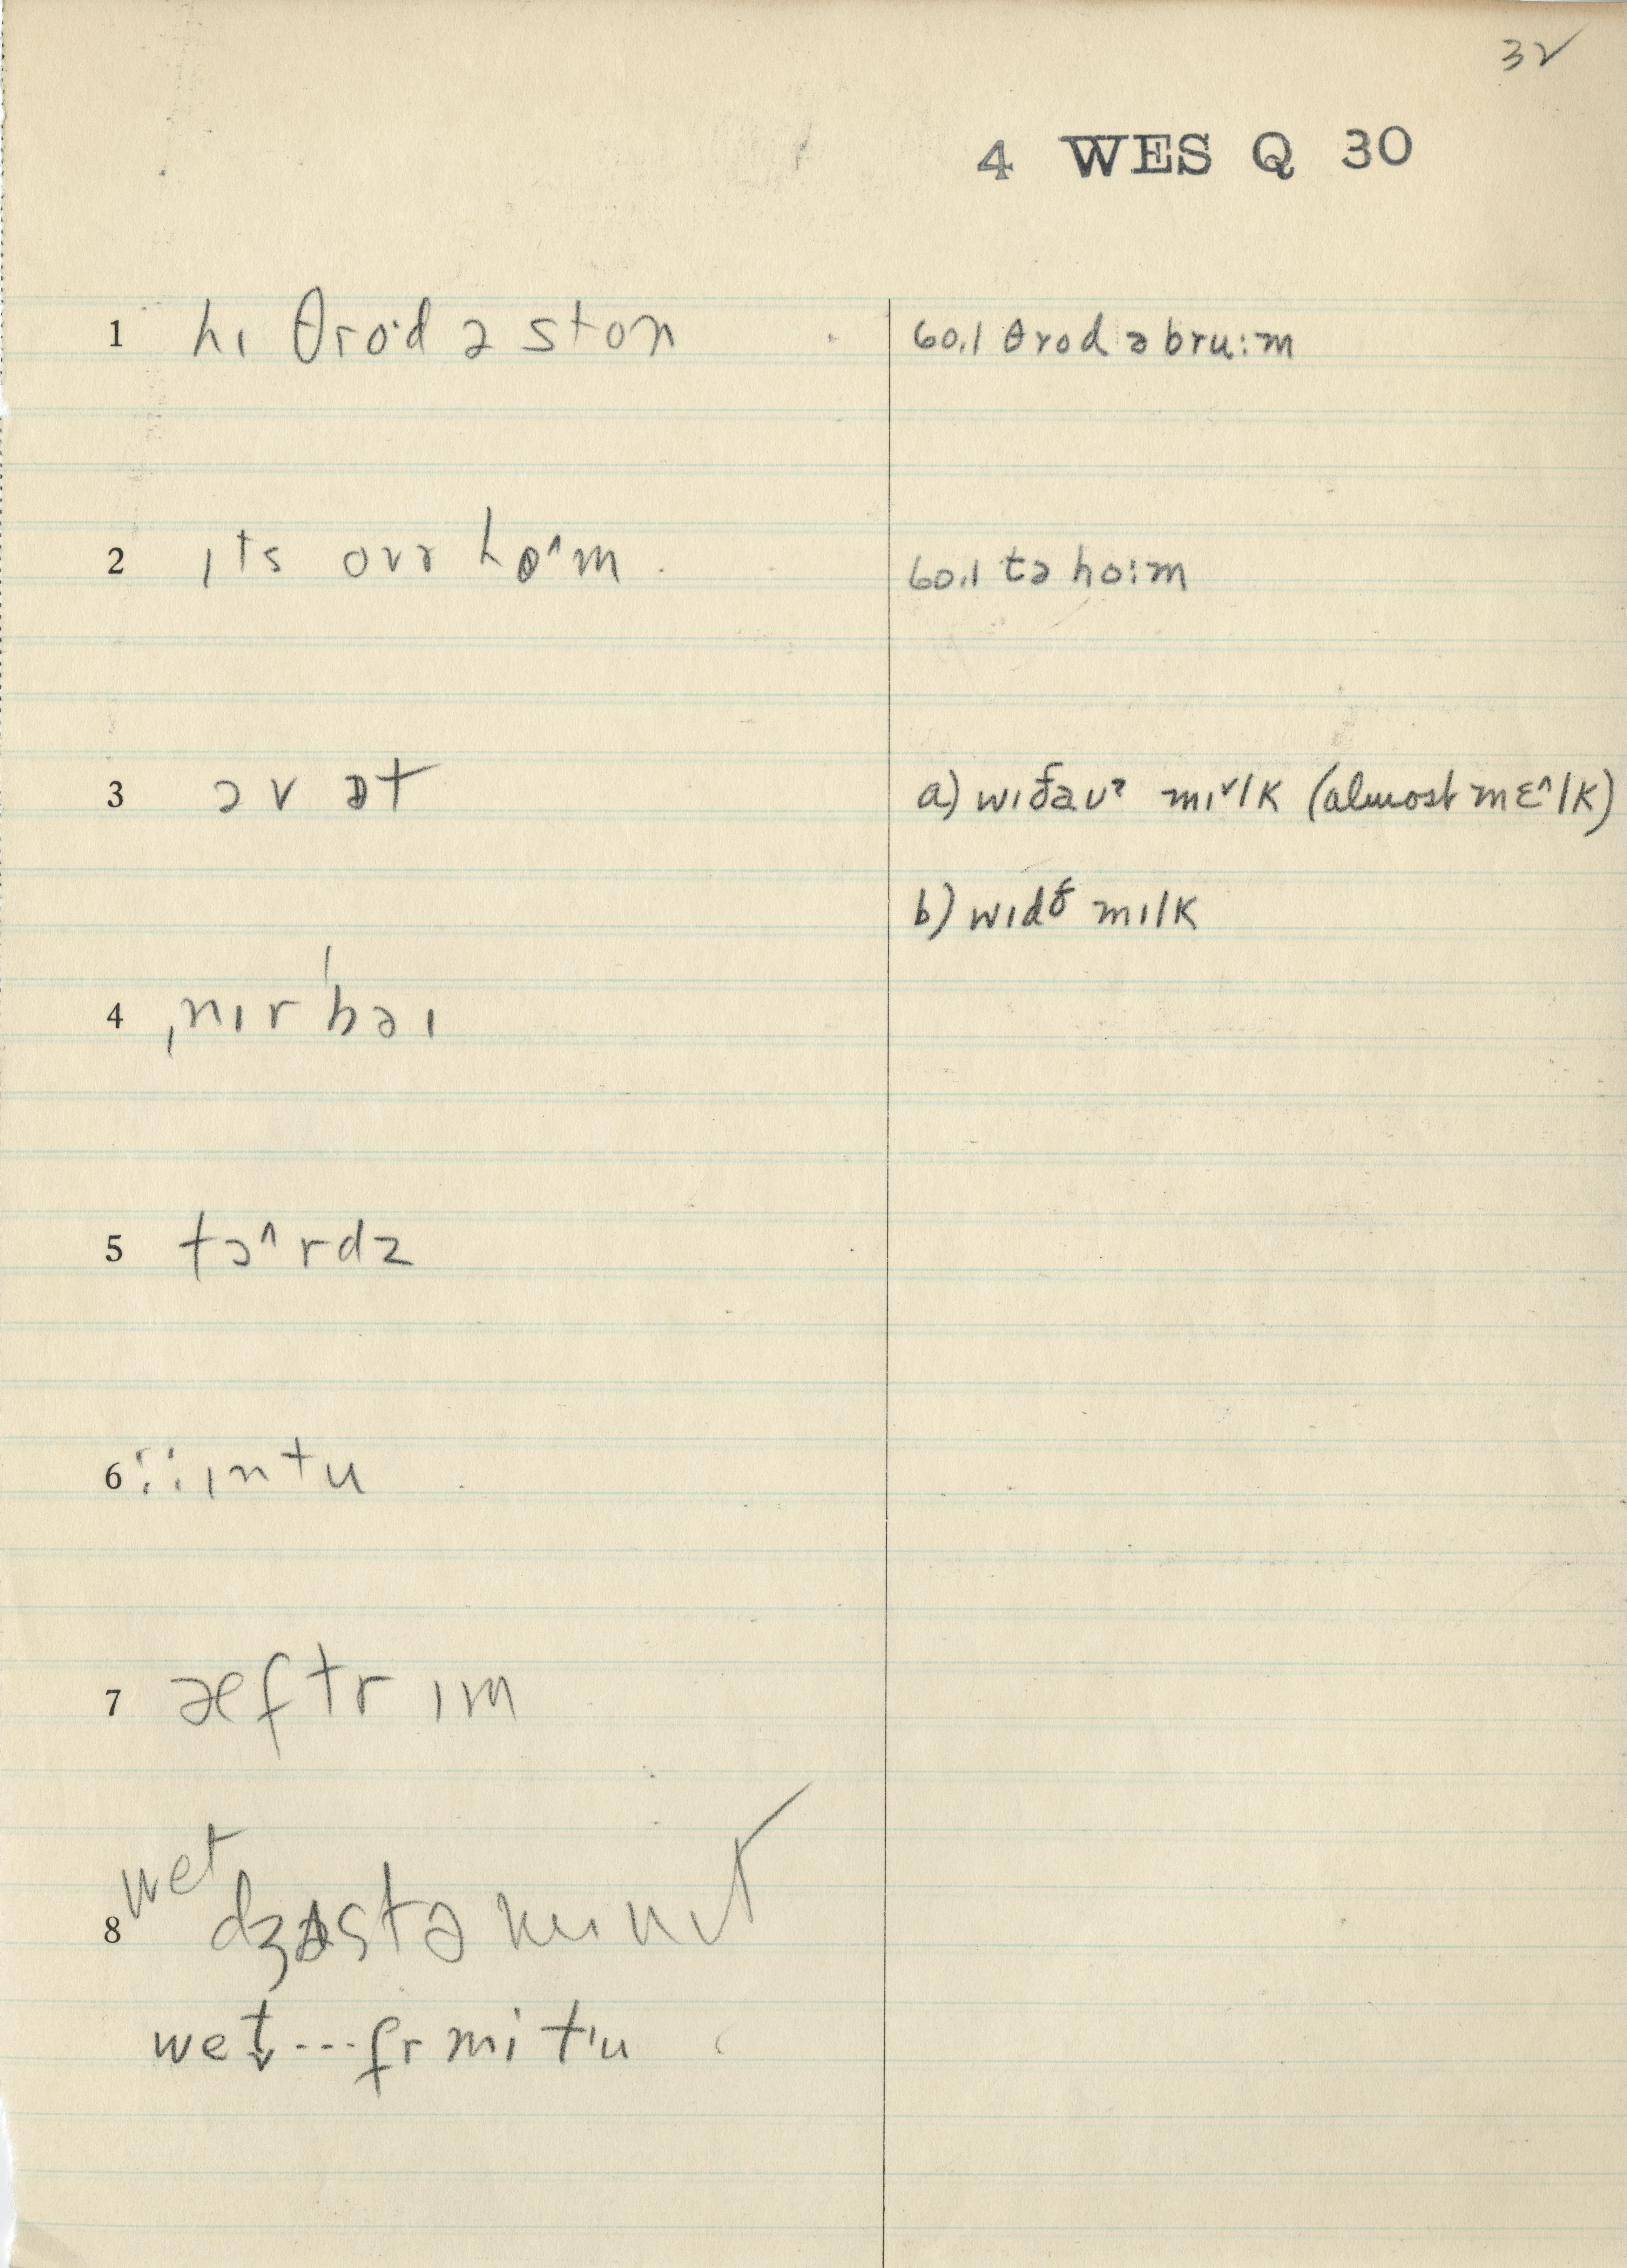 32
4 WES Q 30
1 hɪ θro·d ə ston
60.1 θrod ə bru:m
2 ɪts ovr ho^m
60.1 tə ho:m
3 əv ət
a) mɪˇlk (almost mɛ^lk)
b) mɪlk
4 ˌnɪrˈbəɪ
5 tɔ^rdz
6 ɪntu
7 æftr ɪm
wet
8
wet̬---fr mi tu